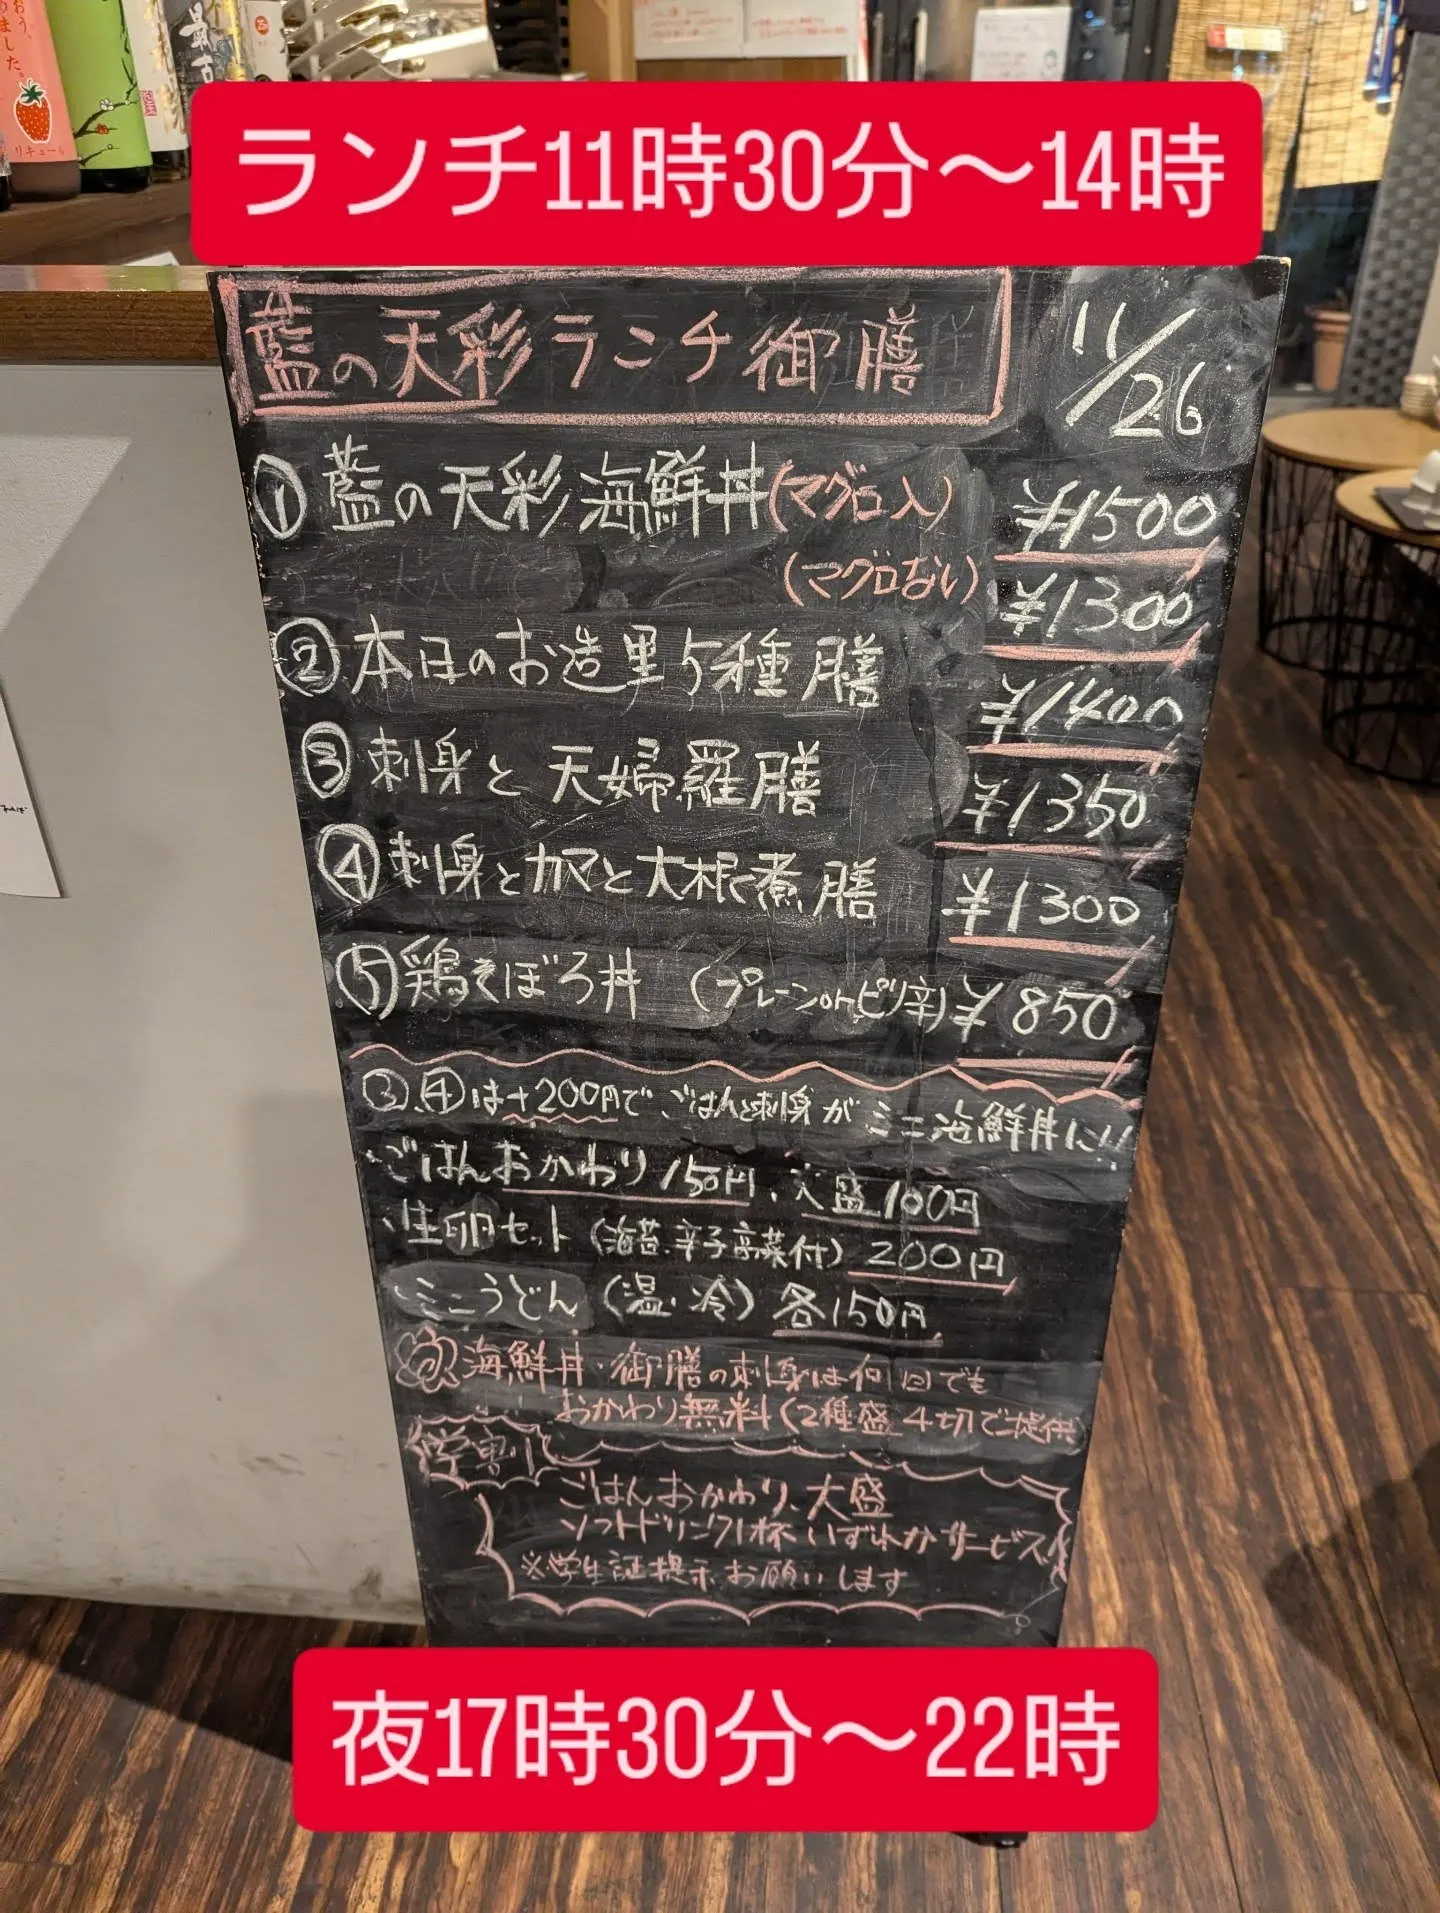 おう、
ました。
リキュール
ランチ11時30分〜14時
藍の天彩ランチ御膳
11/26
① 藍の天彩海鮮丼(マグロ入) ¥1500
(マグロない) ¥1300
② 本日のお造里5種膳 ¥1400
③ 刺身と天婦羅膳 ¥1350
④ 刺身とカマと大根煮膳 ¥1300
⑤ 鶏そぼろ丼 (プレーンorピリ辛) ¥850
③、④は+200円で、ごはんと刺身がミニ海鮮丼に!!
・ごはんおかわり150円、大盛100円
・生卵セット(海苔、辛子高菜付) 200円
・ミニうどん (温・冷) 各150円
海鮮丼・御膳の刺身は何回でも
おかわり無料(2種盛4切で提供)
学割
ごはんおかわり、大盛
ソフトドリンク1杯 いずれかサービス!
※学生証提示お願いします
夜17時30分〜22時